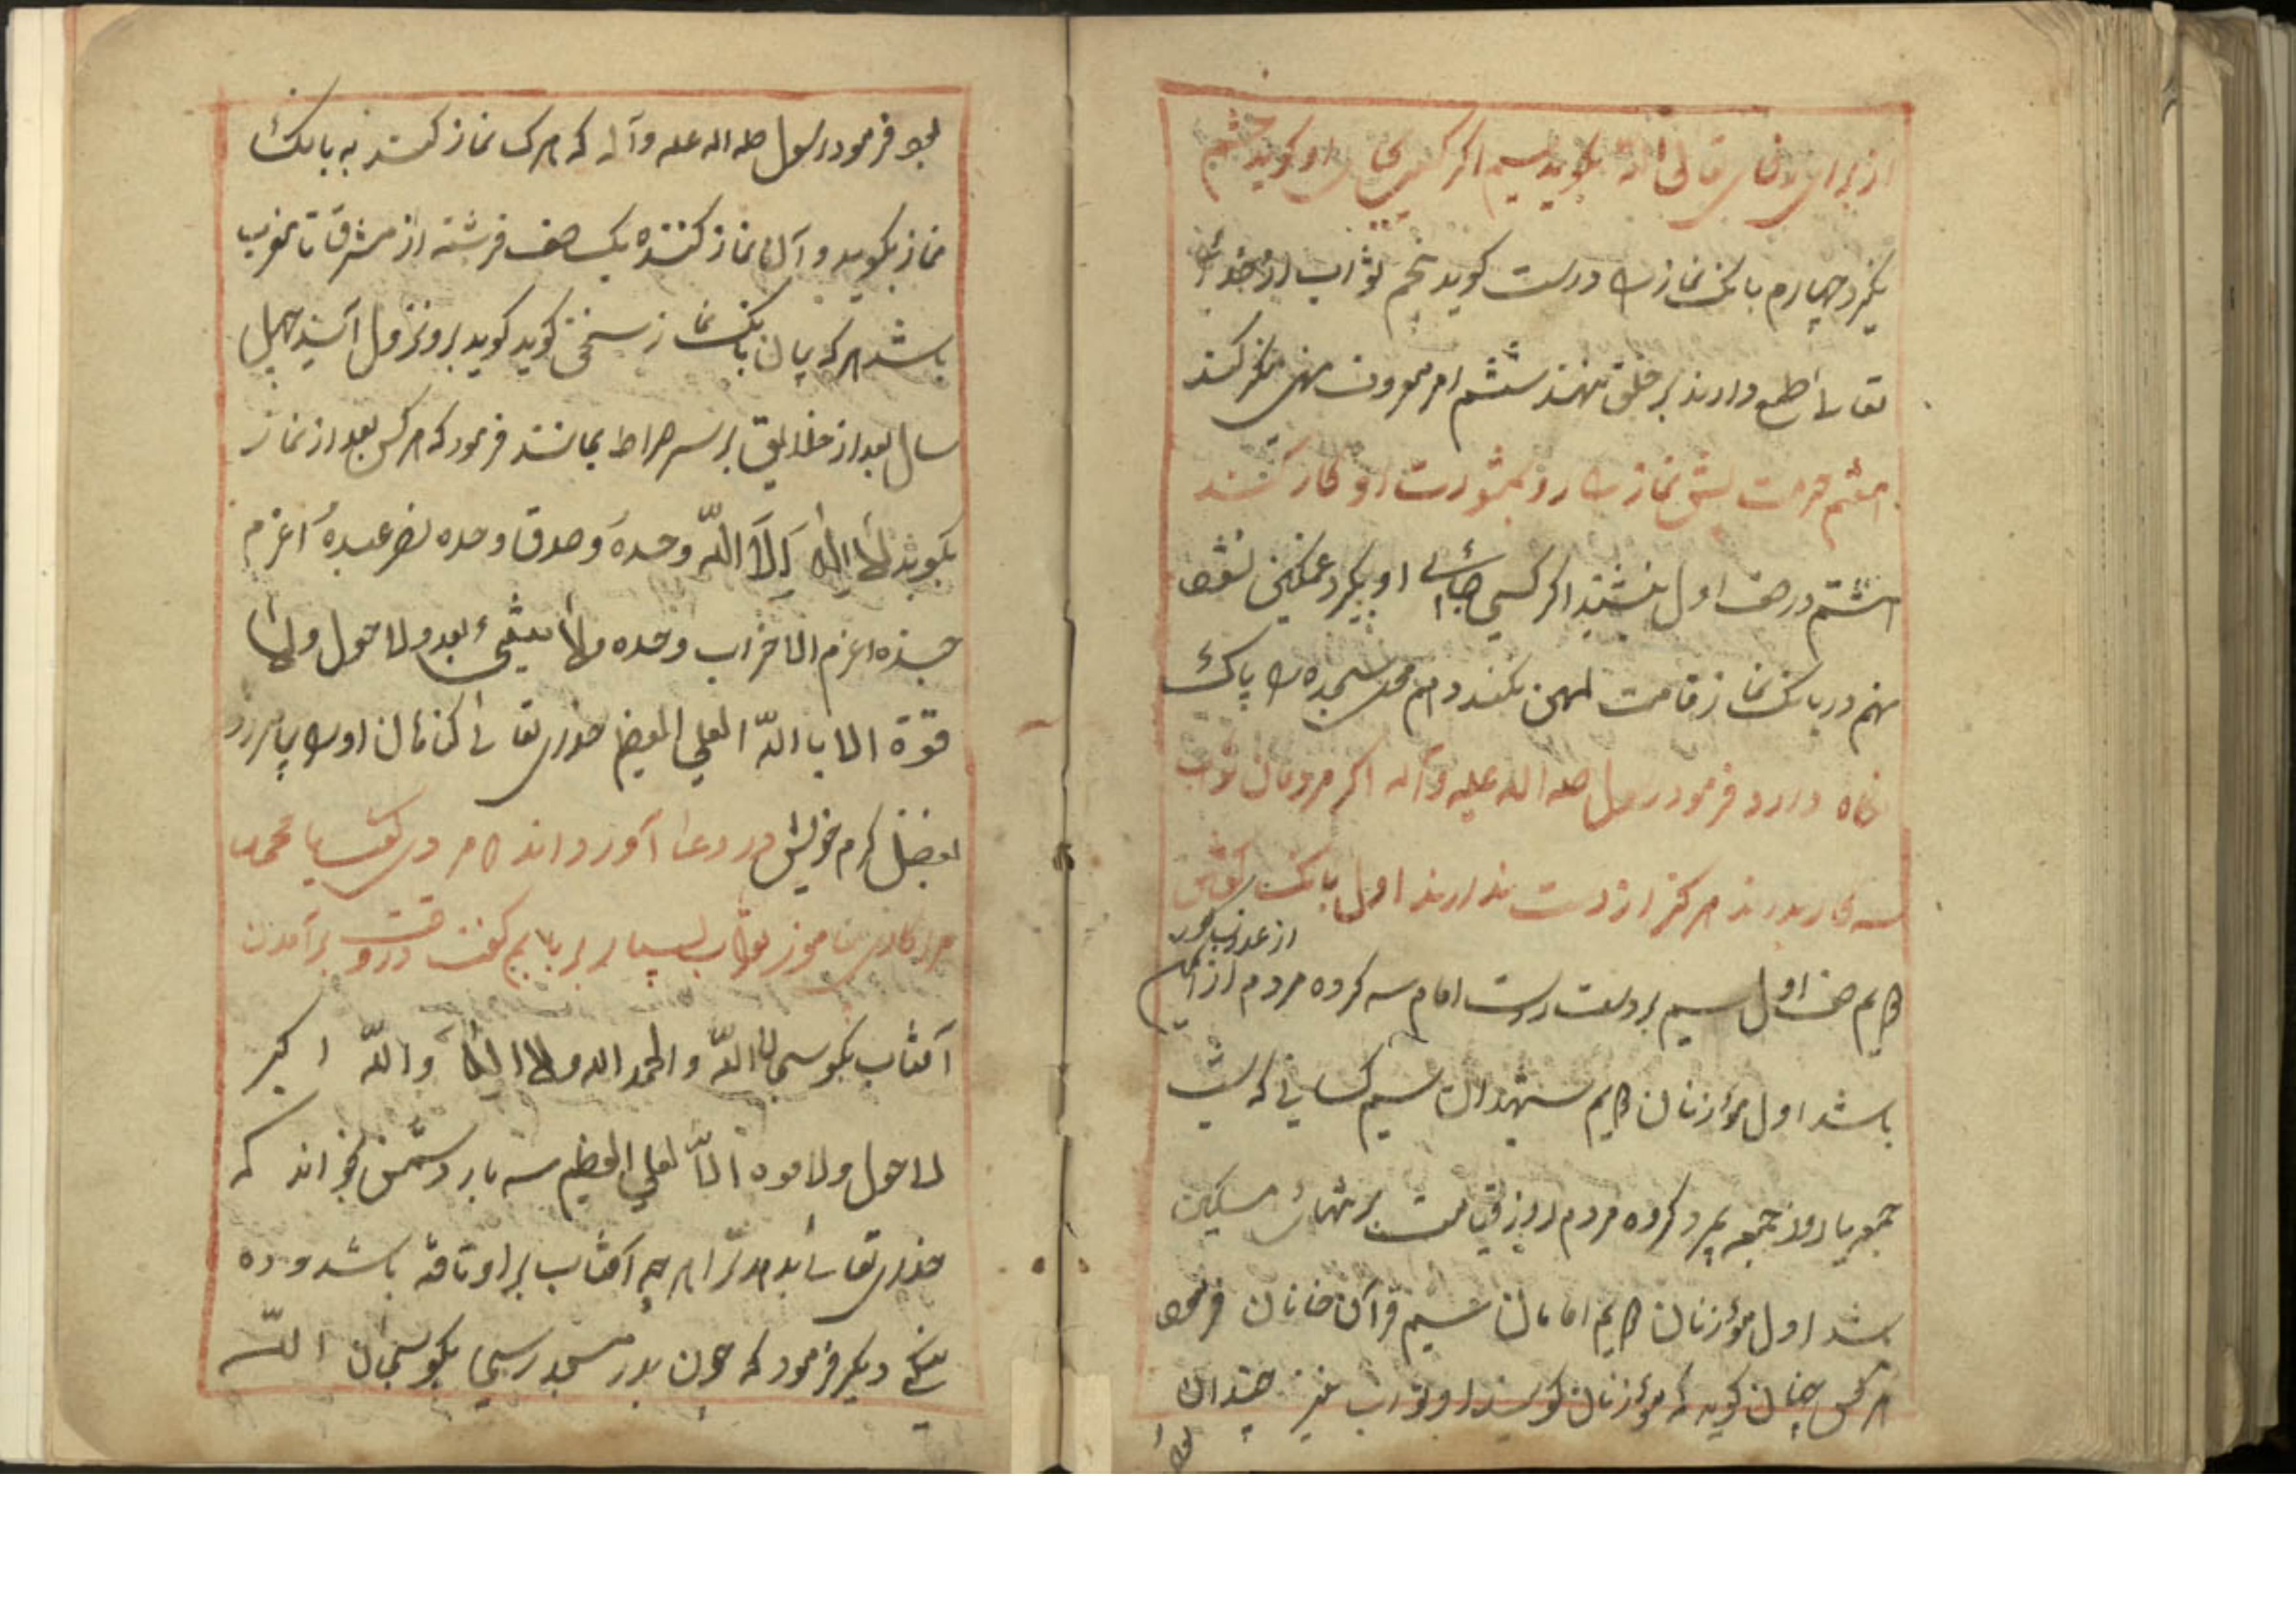 از برای خدای تعالی بگوید سیم اگر کسی بجای او گوید خشم
نگیرد چهارم بانک نماز را درست گوید پنجم ثواب از خدای
تعالی طمع دارند بر خلق نهند ششم امر معروف نهی منکر کند
هفتم حرمت پیش نماز را دارد بمشورت او کار کنند
هشتم در صف اول بنشیند اگر کسی جای او بگیرد غمگین نشود
نهم در بانک نماز قامت لهن نکند دهم مسجد را پاک
نگاه دارد فرمود رسول صلی الله علیه وآله اگر مردمان ثواب
سه کار بدانند هرگز از دست ندارند اول بانک گفتن
از عذاب گور
دویم صف اول سیم بر دست راست امام سه گروه مردم از ایمن
باشد اول مؤذنان دویم شهیدان سیم کسانی که شب
جمعه یا روز جمعه بمیرد گروه مردم روز قیامت بر تلهای مسکین
باشد اول مؤذنان دویم امامان سیم قرآن خانان فرمود
هر کس چنان گوید که مؤذنان گویند او ثواب نیز چندان
بود
بود فرمود رسول صله الله علیه وآله که هرک نماز کند به بانک
نماز بگوید و آن نماز کننده یک صف فرشته از مشرق تا مغرب
باشد هر که میان بانک نماز سخن گوید گوید برو نزول آید چهل
سال بعد از خلایق بر سر صراط بماند فرمود که هر کس بعد از نماز
بگوید لا اله الا الله وحده وصدق وحده نصر عبده اعزم
جنده اعزم الاحزاب وحده ولا شیء بعد ولا حول ولا
قوة الا باالله العلی العضیم خدای تعالی گناهان او را بیامرزد
بفضل کرم خویش در دعا آورداند که مردی گفت یا محمد
مرا کاری بیاموز ثواب بسیار بر یابم گفت در وقت برآمدن
آفتاب بگو سبحان الله والحمد الله ولا اله الا والله اکبر
لا حول ولا قوه الا لعلی العظیم سه بار دشمن بخواند که
خدای تعالی بدهد ترا هر چه آفتاب بر او تافته باشد و ده
نیکی دیگر فرمود که چون بدر مسجد رسی بگو سبحان الله